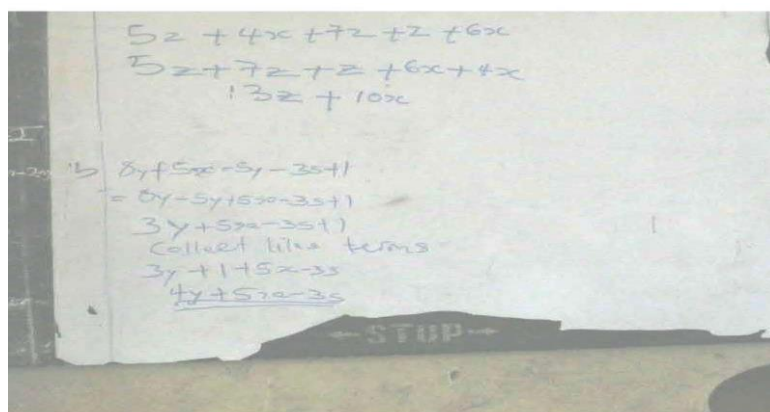 5z + 4x + 7z + z + 6x
5z + 7z + z + 6x + 4x
13z + 10x
b) 8y + 5x - 5y - 3s + 1
= 8y - 5y + 5x - 3s + 1
3y + 5x - 3s + 1
Collect like terms
3y + 1 + 5x - 3s
4y + 5x - 3s
←STOP→